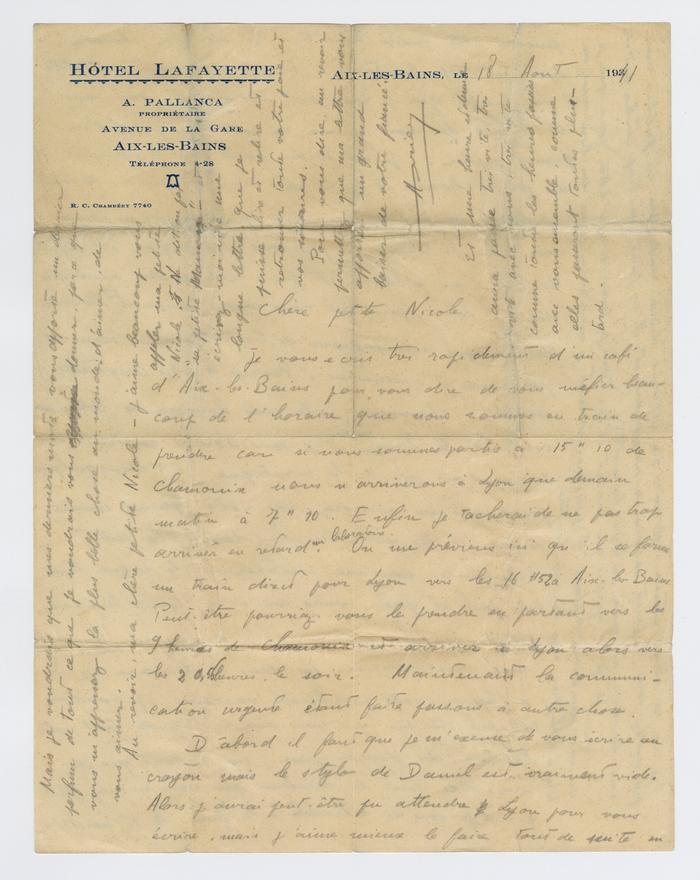 HÔTEL LAFAYETTE
A. PALLANCA
PROPRIÉTAIRE
AVENUE DE LA GARE
AIX-LES-BAINS
TÉLÉPHONE 4-28
R. C. CHAMBÉRY 7740
AIX-LES-BAINS, LE 18 Aout 1941
Chère petite Nicole
Je vous écris très rapidement d'un café
d'Aix-les-Bains pour vous dire de vous méfier beau-
coup de l'horaire que nous sommes en train de
prendre car si nous sommes partis à 15"10 de
Chamonix nous n'arriverons à Lyon que demain
matin à 7"10. Enfin je tacherai de ne pas trop
arriver en retard au laboratoire. On me prévient ici qu'il se forme
un train direct pour Lyon vers les 16 H 52 à Aix-les-Bains
Peut-être pourriez-vous le prendre en partant vers les
9 heures de Chamonix et arriver à Lyon alors vers
les 20 heures le soir. Maintenant la communi-
cation urgente étant faite passons à autre chose.
D'abord il faut que je m'excuse de vous écrire au
crayon mais le stylo de Daniel est vraiment vide.
Alors j'aurai peut-être pu attendre Lyon pour vous
écrire, mais j'aime mieux le faire tout de suite en
Mais je voudrais que mes derniers mots vous apporte un dernier
parfum de tout ce que je voudrais vous donner, parce que
vous m'apprenez la plus belle chose au monde, d'aimer, de
vous aimer.
Au revoir, ma chère petite Nicole - j'aime beaucoup vous
appeler ma petite
Nicole
sa petite
écrivez-moi vite une
longue lettre que je
puisse lire et relire et
retrouver toute votre joie et
vos sourires.
Pour vous dire au revoir
permettez que ma lettre vous
apporte un grand
baiser de votre fiancé.
Et une heure et demie
aura passé très vite, très
vite avec vous, très vite
comme toutes les heures passées
avec vous ensemble comme
elles passeront toutes plus
tard.